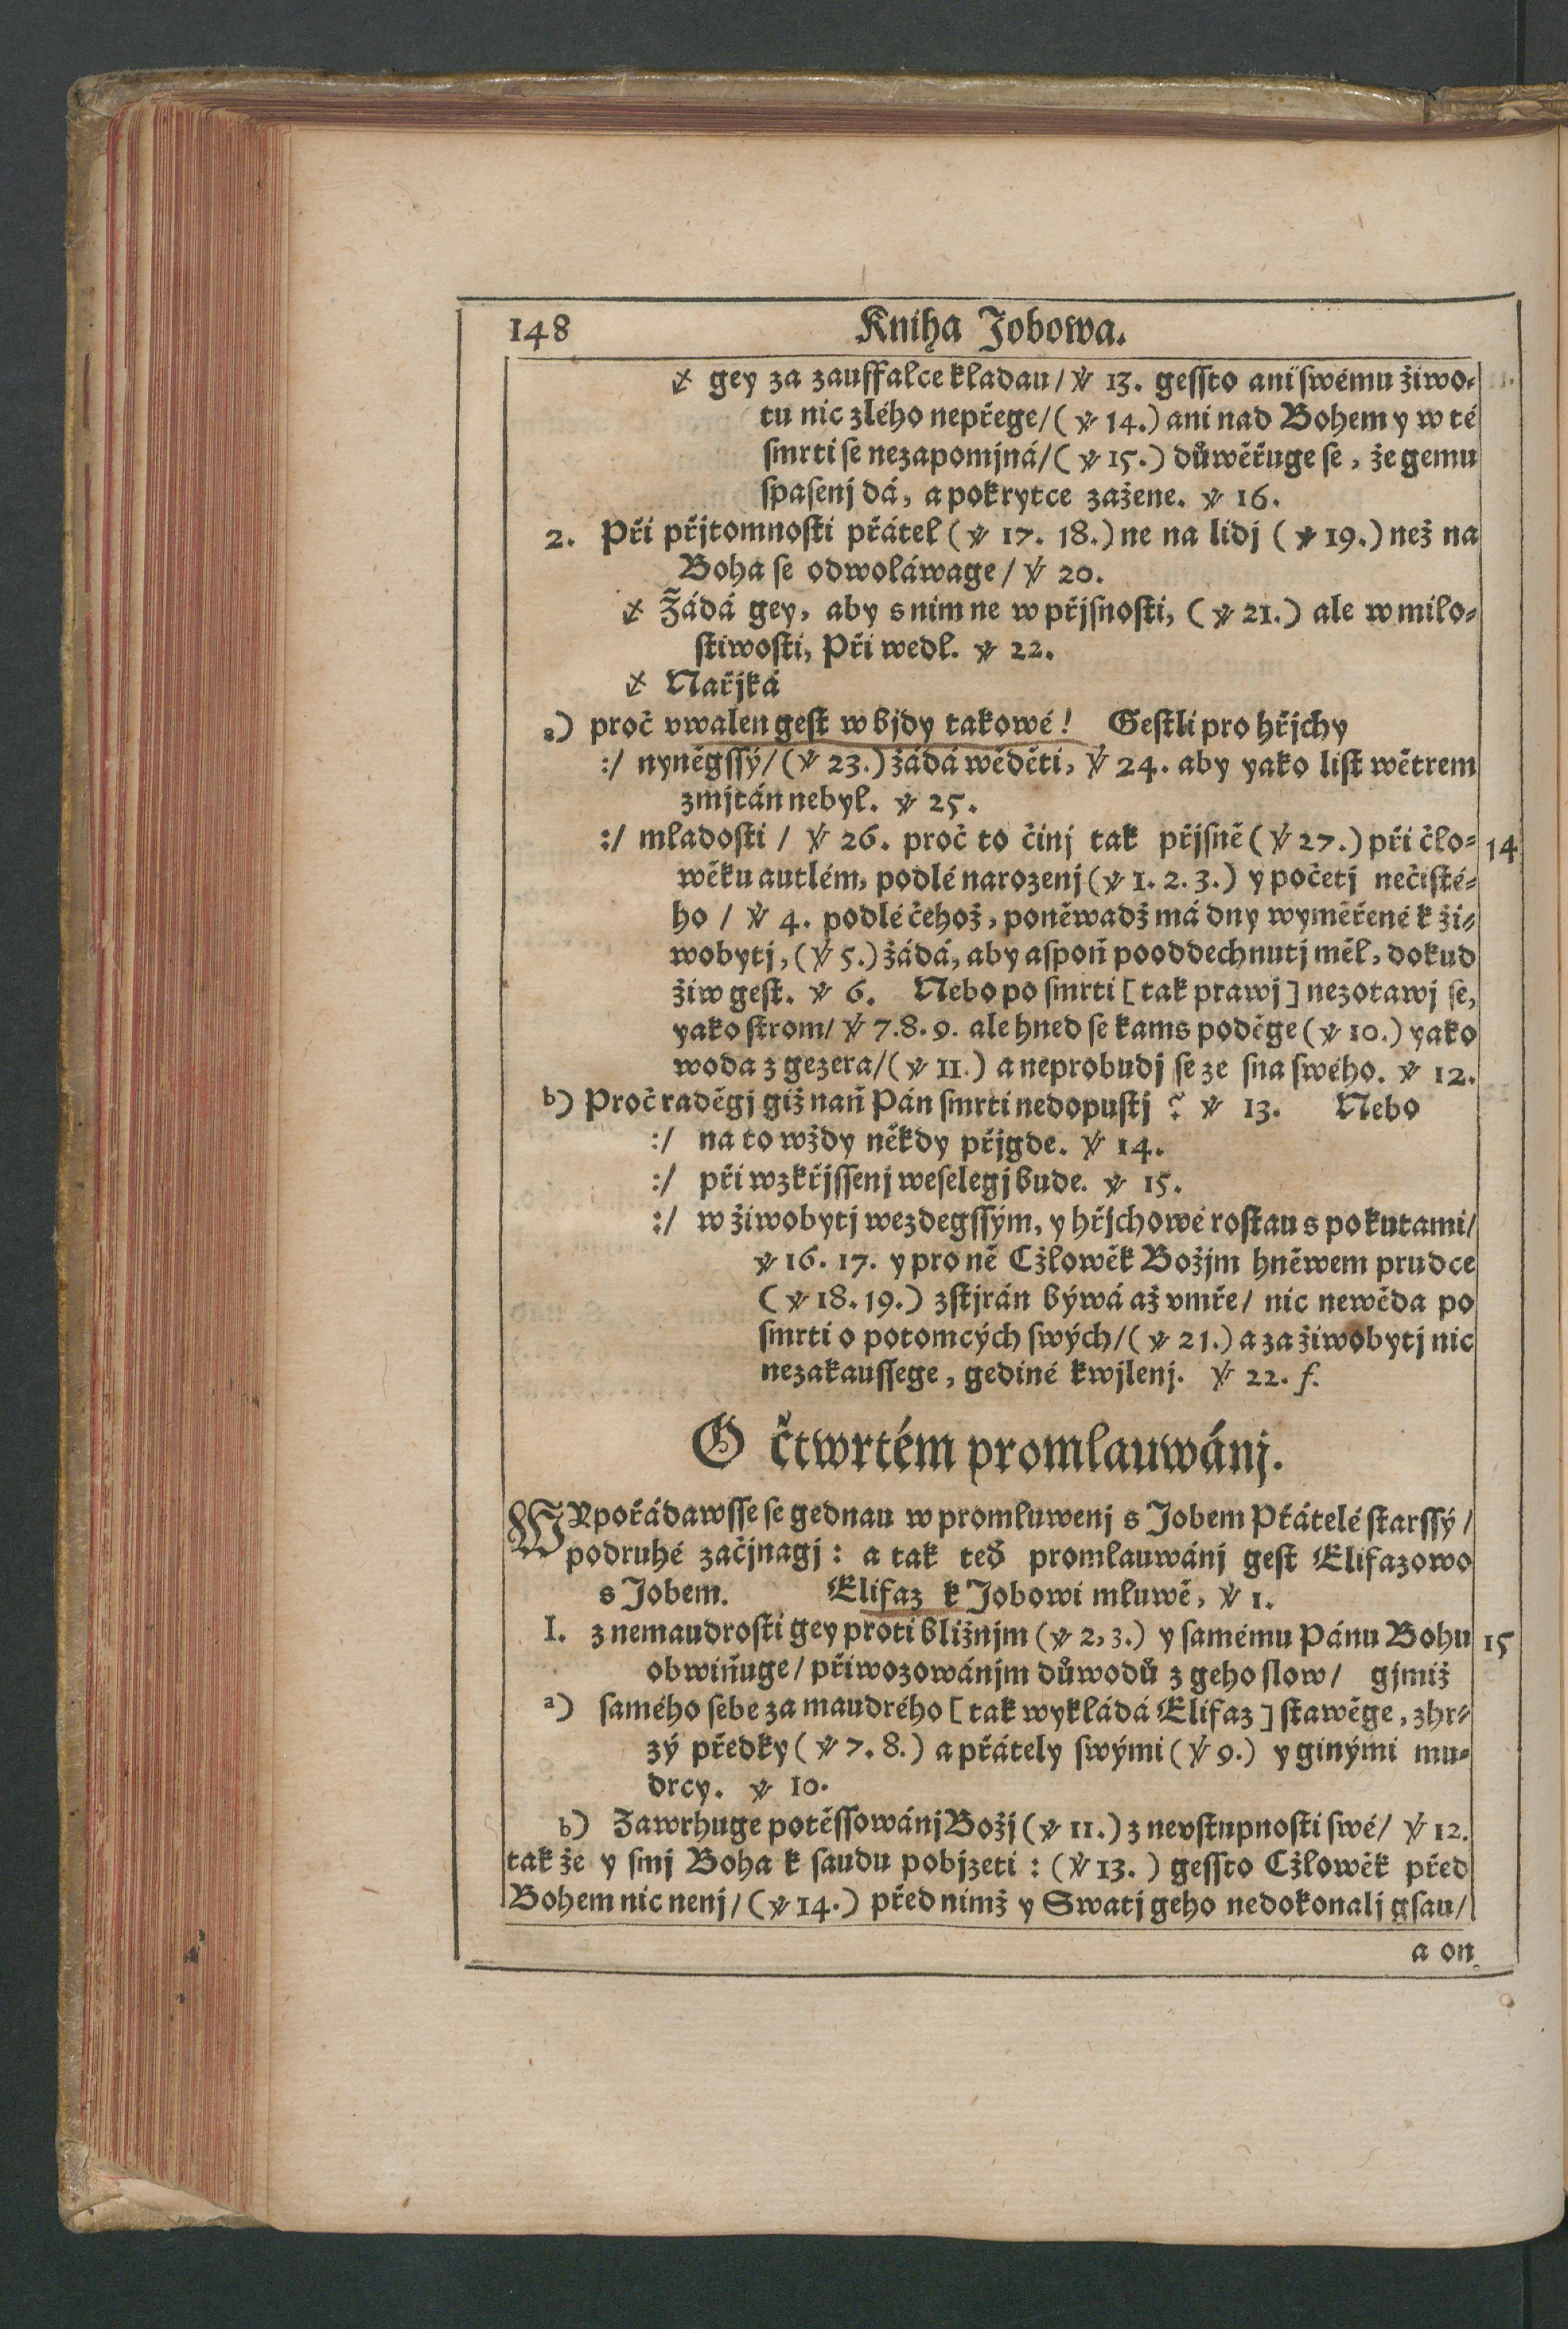 148 Kniha Jobowa.
☧ gey za zauffalce kladau / ℣ 13. geſſto ani ſwému žiwo-
tu nic zlého nepřege / (℣ 14.) ani nad Bohem y w té
ſmrti ſe nezapomjná / (℣ 15.) důwěřuge ſe, že gemu
ſpaſenj dá, a pokrytce zažene. ℣ 16.
2. Při přjtomnoſti přátel (℣ 17. 18.) ne na lidj (℣ 19.) než na
Boha ſe odwoláwage / ℣ 20.
Žádá gey, aby s nim ne w přjſnoſti, (℣ 21.) ale w milo-
ſtiwoſti, Při wedl. ℣ 22.
Nařjká
a) proč vwalen geſt w bjdy takowé! Geſtli pro hřjchy
:/ nyněgſſý / (℣ 23.) žádá wěděti, ℣ 24. aby yako liſt wětrem
zmjtán nebyl. ℣ 25.
:/ mladoſti / ℣ 26. proč to činj tak přjſně (℣ 27.) při člo- 14
wěku autlém, podlé narozenj (℣ 1. 2. 3.) y početj nečiſté-
ho / ℣ 4. podlé čehož, poněwadž má dny wyměřené k ži-
wobytj, (℣ 5.) žádá, aby aſpoň pooddechnutj měl, dokud
žiw geſt. ℣ 6. Nebo po ſmrti [tak prawj] nezotawj ſe,
yako ſtrom / ℣ 7. 8. 9. ale hned ſe kams poděge (℣ 10.) yako
woda z gezera / (℣ 11.) a neprobudj ſe ze ſna ſwého. ℣ 12.
b) Proč raděgj giž naň Pán ſmrti nedopuſtj? ℣ 13. Nebo
:/ na to wždy někdy přjgde. ℣ 14.
:/ při wzkřjſſenj weſelegj bude. ℣ 15.
:/ w žiwobytj wezdegſſým, y hřjchowé roſtau s pokutami /
℣ 16. 17. y pro ně Cžlowěk Božjm hněwem prudce
(℣ 18. 19.) zſtjrán býwá až vmře / nic newěda po
ſmrti o potomcých ſwých / (℣ 21.) a za žiwobytj nic
nezakauſſege, gediné kwjlenj. ℣ 22. f.
O čtwrtém promlauwánj.
WYpořádawſſe ſe gednau w promluwenj s Jobem Přátelé ſtarſſý /
podruhé začjnagj : a tak teď promlauwánj geſt Elifazowo
s Jobem. Elifaz k Jobowi mluwě, ℣ 1.
I. z nemaudroſti gey proti bližnjm (℣ 2, 3.) y ſamému Pánu Bohu 15
obwiňuge / přiwozowánjm důwodů z geho ſlow / gjmiž
a) ſamého ſebe za maudrého [tak wykládá Elifaz] ſtawěge, zhr-
zý předky (℣ 7. 8.) a přátely ſwými (℣ 9.) y ginými mu-
drcy. ℣ 10.
b) Zawrhuge potěſſowánj Božj (℣ 11.) z nevſtupnoſti ſwé / ℣ 12.
tak že y ſmj Boha k ſaudu pobjzeti : (℣ 13.) geſſto Cžlowěk před
Bohem nic nenj / (℣ 14.) před nimž y Swatj geho nedokonalj gſau /
a on